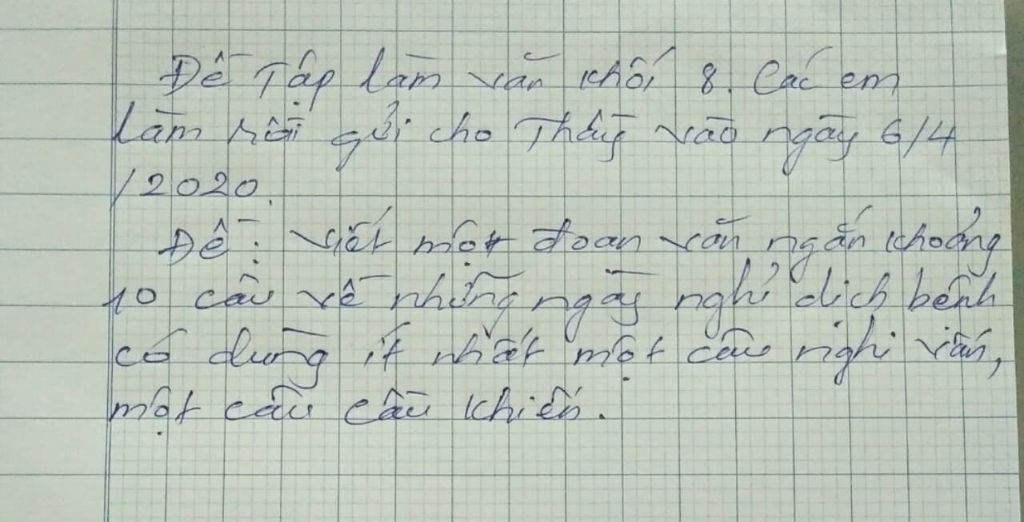 Đề Tập làm văn khối 8. Các em
làm rồi gửi cho Thầy vào ngày 6/4
/2020.
Đề: viết một đoạn văn ngắn khoảng
10 câu về những ngày nghỉ dịch bệnh
có dùng ít nhất một câu nghi vấn,
một câu cầu khiến.